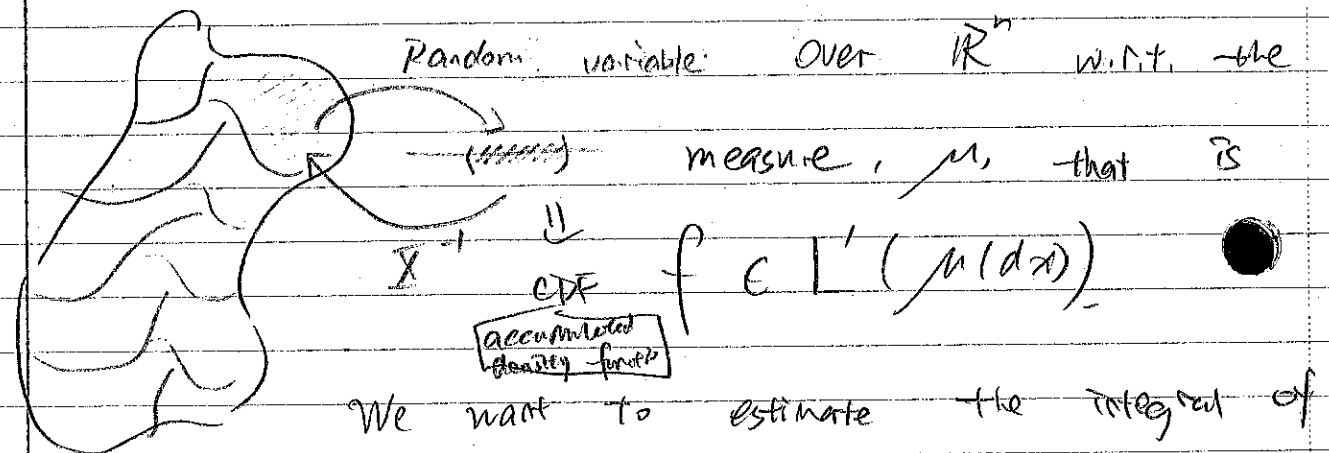 Random variable over ℝⁿ w.r.t. the
measure, μ, that is
X⁻¹
CDF
f ∈ L¹(μ(dx)).
accumulated
density
We want to estimate the integral of